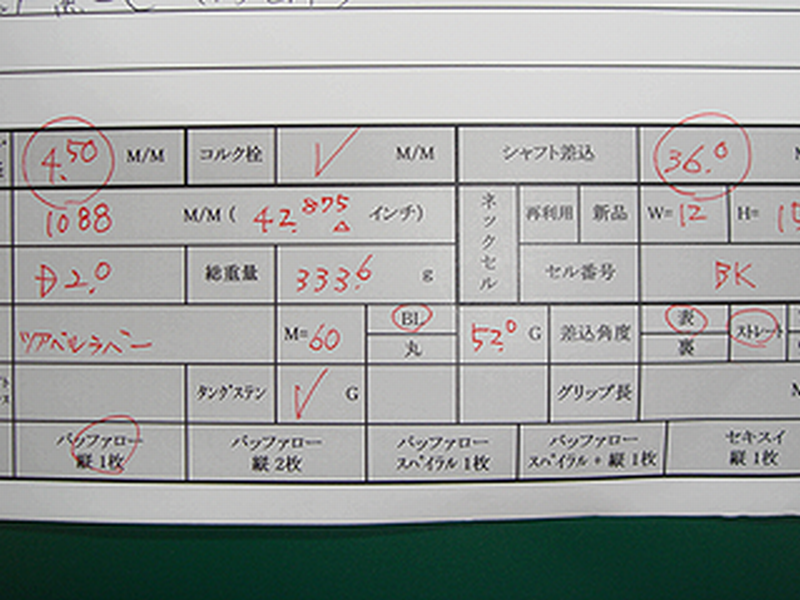 4.50 M/M コルク栓 ✓ M/M シャフト差込 36.0
1088 M/M ( 42.875 △ インチ) ネックセル 再利用 新品 W= 12 H=
D2.0 総重量 333.6 g セル番号 BK
ツアーベルラバー M= 60 BL 丸 52.0 G 差込角度 表 裏 ストレート
タングステン ✓ G グリップ長
バッファロー 縦1枚 バッファロー 縦2枚 バッファロー スパイラル1枚 バッファロー スパイラル+縦1枚 セキスイ 縦1枚